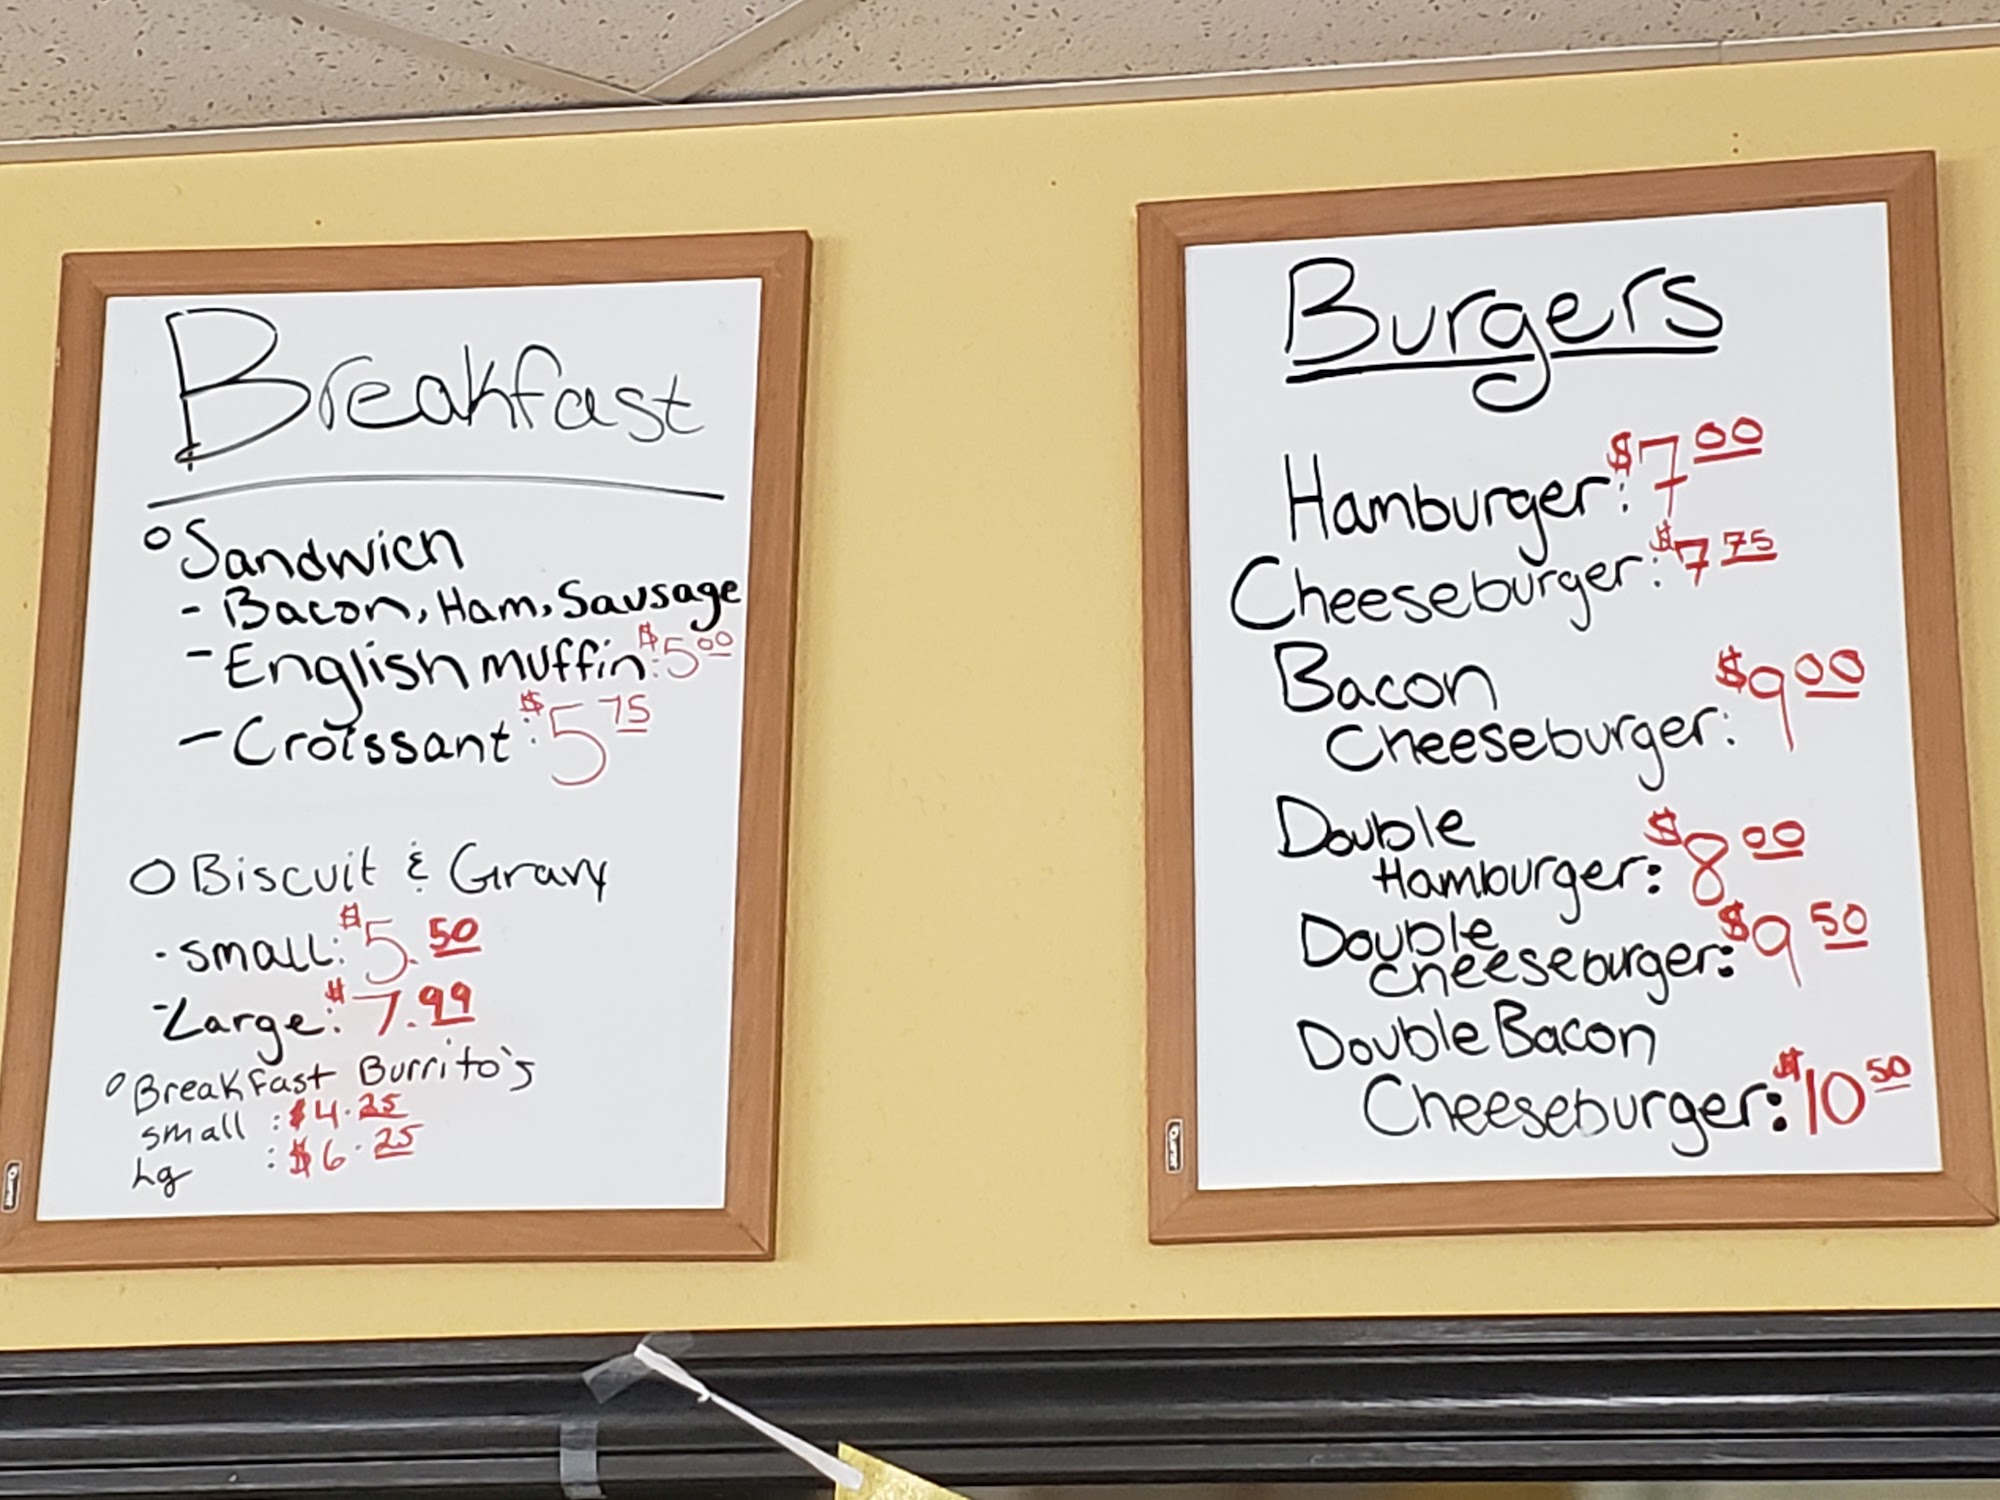 Breakfast
Sandwich
- Bacon, Ham, Sausage
- English muffin: $5 00
- Croissant: $5 75
Biscuit & Gravy
- small: $5.50
- Large: $7.99
Breakfast Burrito's
small : $4.25
Lg : $6.25
Quartet
Burgers
Hamburger: $7 00
Cheeseburger: $7 75
Bacon
Cheeseburger: $9 00
Double
Hamburger: $8 00
Double
Cheeseburger: $9 50
Double Bacon
Cheeseburger: $10 50
Quartet